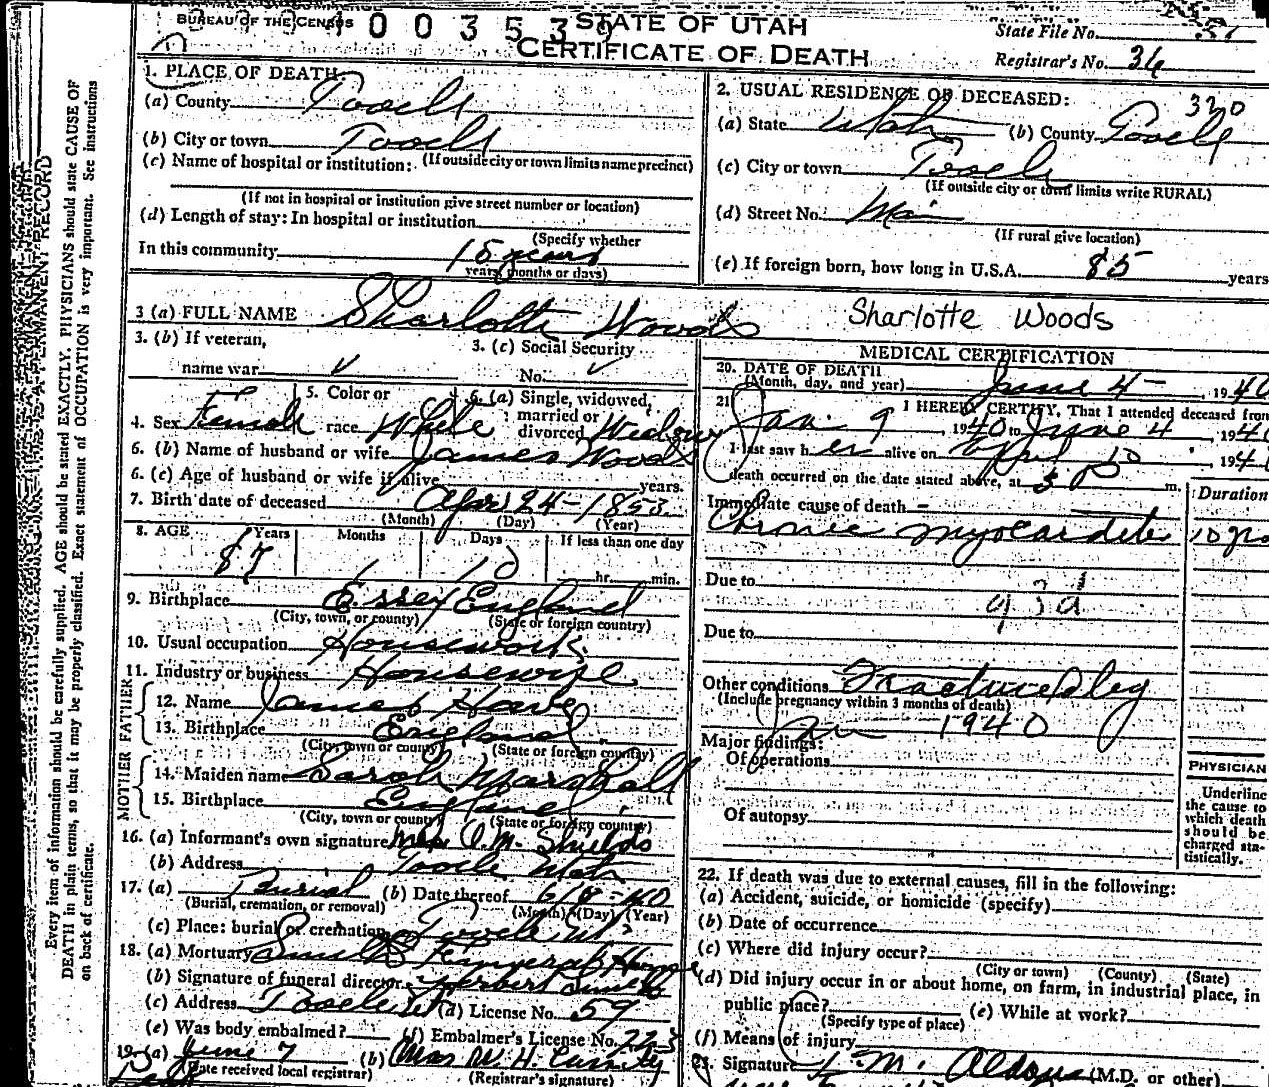 BUREAU OF THE CENSUS
STATE OF UTAH
CERTIFICATE OF DEATH
State File No.
Registrar's No. 36
1. PLACE OF DEATH:
(a) County Tooele
(b) City or town Tooele
(If outside city or town limits name precinct)
(c) Name of hospital or institution:
(If not in hospital or institution give street number or location)
(d) Length of stay: In hospital or institution
(Specify whether
In this community 15 years
years, months or days)
2. USUAL RESIDENCE OF DECEASED: 320
(a) State Utah (b) County Tooele
(c) City or town Tooele
(If outside city or town limits write RURAL)
(d) Street No. Main
(If rural give location)
(e) If foreign born, how long in U.S.A. 85 years
3 (a) FULL NAME Sharlotte Woods Sharlotte Woods
3. (b) If veteran,
name war
3. (c) Social Security
No.
4. Sex Female
5. Color or
race White
6. (a) Single, widowed,
married or
divorced Widow
6. (b) Name of husband or wife James Woods
6. (c) Age of husband or wife if alive years.
7. Birth date of deceased Apr 24 - 1853
(Month) (Day) (Year)
8. AGE Years Months Days If less than one day
87 1 10 hr. min.
9. Birthplace Essex England
(City, town, or county) (State or foreign country)
10. Usual occupation Housework
11. Industry or business Housewife
FATHER
12. Name James
13. Birthplace England
(City, town or county) (State or foreign country)
MOTHER
14. Maiden name Sarah Marshall
15. Birthplace England
(City, town or county) (State or foreign country)
16. (a) Informant's own signature Mrs O.M. Shields
(b) Address Tooele Utah
17. (a) Burial (b) Date thereof 6/8-40
(Burial, cremation, or removal) (Month) (Day) (Year)
(c) Place: burial or cremation Tooele Ut
18. (a) Mortuary Funeral Home
(b) Signature of funeral director Herbert
(c) Address Tooele Ut (d) License No. 59
(e) Was body embalmed? (f) Embalmer's License No. 223
19. (a) June 7 (b) Mrs W. H.
(Date received local registrar) (Registrar's signature)
MEDICAL CERTIFICATION
20. DATE OF DEATH
(Month, day, and year) June 4 - , 1940
21. I HEREBY CERTIFY, That I attended deceased from
Jan. 9 1940 to June 4 , 1940
I last saw her alive on April 10 , 194
death occurred on the date stated above, at 3 P m.
Duration
Immediate cause of death
Chronic myocarditis 10
Due to
93d
Due to
Other conditions Fractured leg
(Include pregnancy within 3 months of death)
Jan 1940
Major findings:
Of operations
Of autopsy
PHYSICIAN
Underline
the cause to
which death
should be
charged sta-
tistically.
22. If death was due to external causes, fill in the following:
(a) Accident, suicide, or homicide (specify)
(b) Date of occurrence
(c) Where did injury occur?
(City or town) (County) (State)
(d) Did injury occur in or about home, on farm, in industrial place, in
public place? (e) While at work?
(Specify type of place)
(f) Means of injury
Signature (M.D. or other)
A PERMANENT RECORD
Every item of information should be carefully supplied. AGE should be stated EXACTLY. PHYSICIANS should state CAUSE OF
DEATH in plain terms, so that it may be properly classified. Exact statement of OCCUPATION is very important. See instructions
on back of certificate.